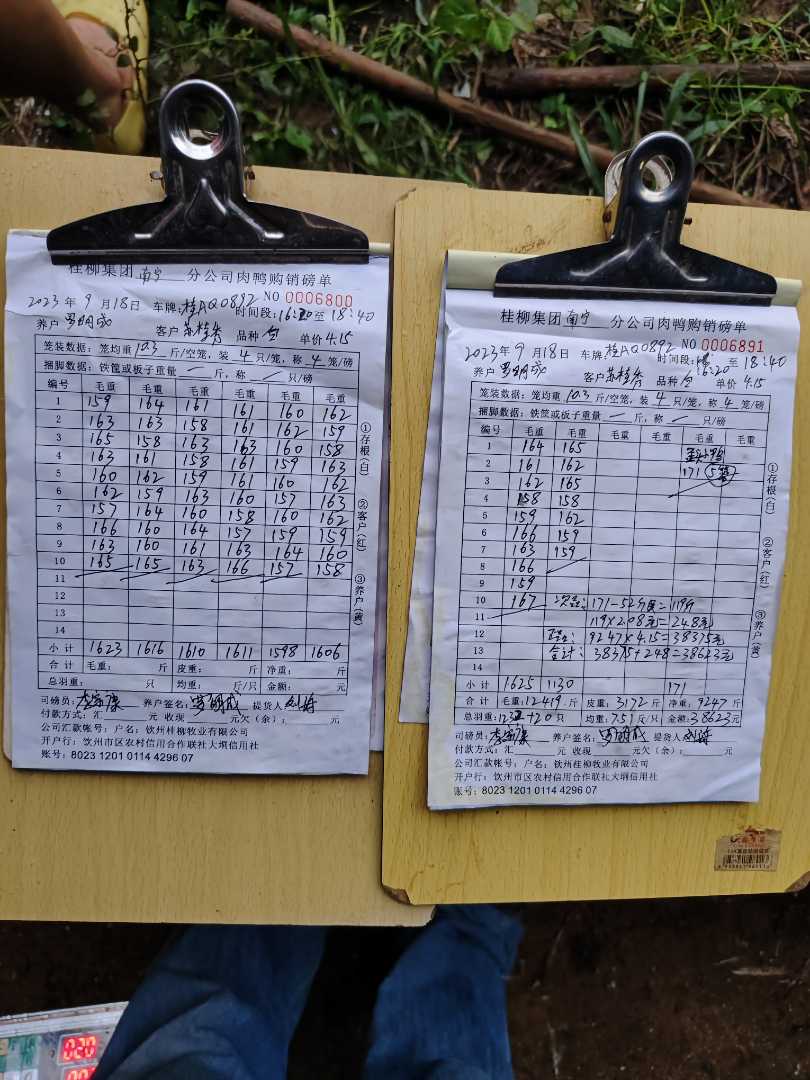 桂柳集团 南宁 分公司肉鸭购销磅单
2023年 9月18日 车牌：桂AQ0892 NO 0006800
养户 罗明成 时间段：16:20至18:40
客户 苏桂秀 品种 白 单价 4.15
笼装数据：笼均重 10.3 斤/空笼，装 4 只/笼，称 4 笼/磅
捆脚数据：铁筐或板子重量 一 斤，称 一 只/磅
编号 毛重 毛重 毛重 毛重 毛重 毛重
1 159 164 161 161 160 162
2 163 163 158 161 162 159
3 165 158 163 163 160 158
4 163 161 158 161 159 163
5 160 162 159 161 160 162
6 162 159 163 160 157 163
7 157 164 160 158 160 162
8 166 160 164 157 159 159
9 163 160 161 163 164 160
10 165 165 163 166 157 158
11
12
13
14
小计 1623 1616 1610 1611 1598 1606
合计 毛重： 斤 皮重： 斤 净重： 斤
总羽重： 只 均重： 斤/只 金额： 元
司磅员： 养户签名：罗明成 提货人
付款方式：汇 元 收现 元欠（余）： 元
公司汇款帐号：户名：钦州桂柳牧业有限公司
开户行：钦州市区农村信用合作联社大垌信用社
账号：8023 1201 0114 4296 07
①存根（白） ②客户（红） ③养户（黄）
桂柳集团 南宁 分公司肉鸭购销磅单
NO 0006891
2023年 9月18日 车牌：桂AQ0892 时间段：16:20 至 18:40
养户 罗明成 客户 苏桂秀 品种 白 单价 4.15
笼装数据：笼均重 10.3 斤/空笼，装 4 只/笼，称 4 笼/磅
捆脚数据：铁筐或板子重量 一 斤，称 一 只/磅
编号 毛重 毛重 毛重 毛重 毛重 毛重
1 164 165
2 161 162 171 5笼
3 162 165
4 158 158
5 159 162
6 166 159
7 163 159
8 166
9 159
10 167 次品：171-52=119斤
11 119×2.08元=248元
12 正品：9247×4.15=38375元
13 合计：38375+248=38623元
14
小计 1625 1130 171
合计 毛重：12419 斤 皮重：3172 斤 净重：9247 斤
总羽重：1232+20 只 均重：7.51 斤/只 金额：38623元
司磅员： 养户签名：罗明成 提货人
付款方式：汇 元 收现 元欠（余）： 元
公司汇款帐号：户名：钦州桂柳牧业有限公司
开户行：钦州市区农村信用合作联社大垌信用社
账号：8023 1201 0114 4296 07
①存根（白） ②客户（红） ③养户（黄）
020